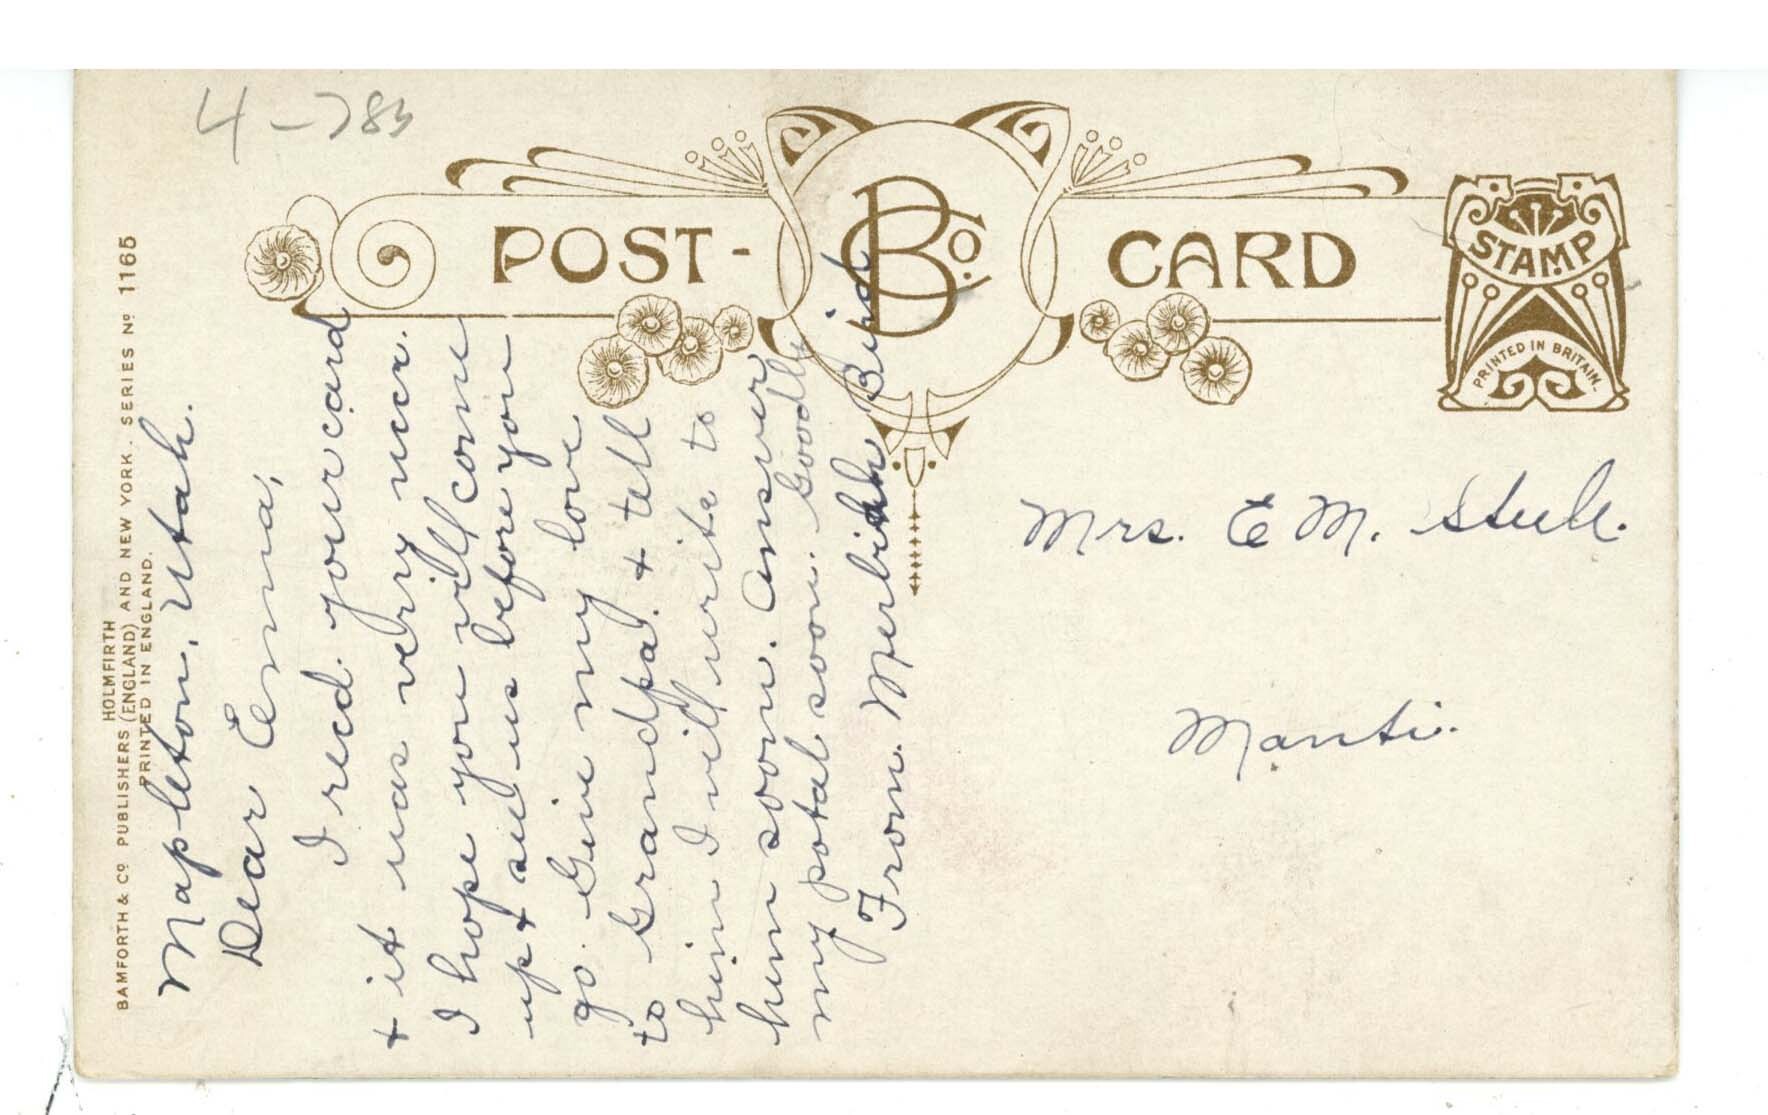 4-783
POST-CARD
BCo.
STAMP
PRINTED IN BRITAIN.
HOLMFIRTH
BAMFORTH & Cº PUBLISHERS (ENGLAND) AND NEW YORK. SERIES Nº 1165
PRINTED IN ENGLAND.
Mapleton, Utah.
Dear Emma,
I recd. your card
+ it was very nice.
I hope you will come
up + see us before you
go. Give my love
to Grandpa. + tell
him I will write to
him soon. Answer
my potal soon. Goodby
From Bird
Mrs. E M. Steele.
Manti.